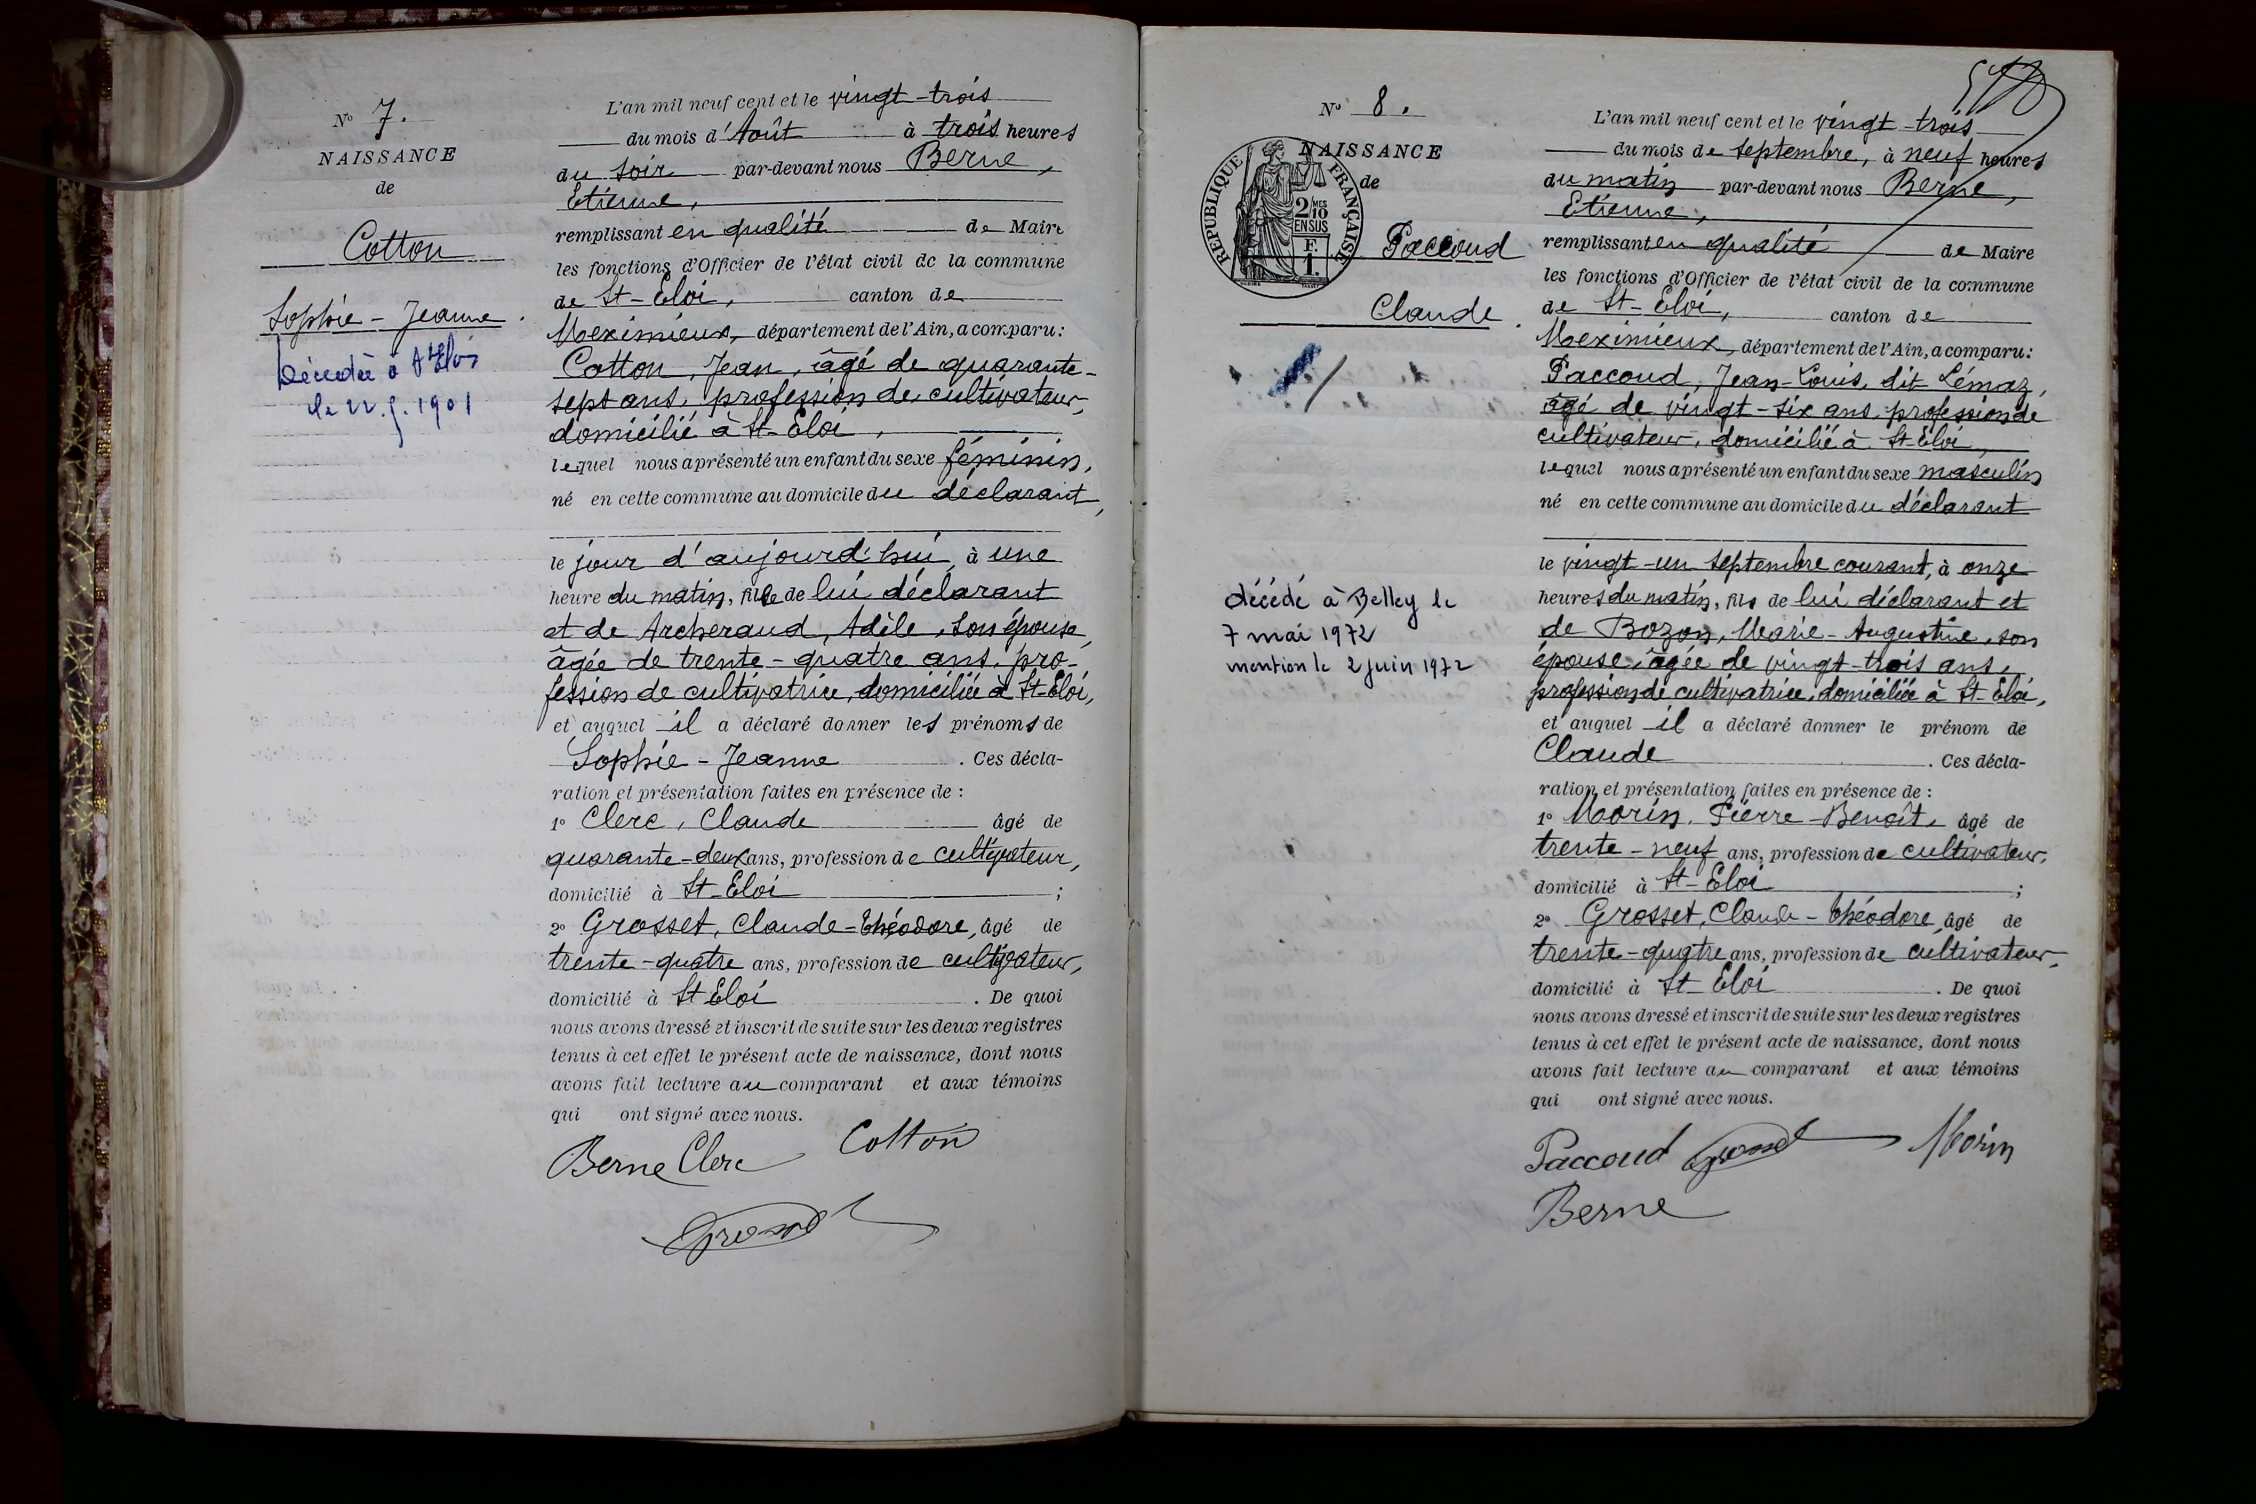 N° 7.
NAISSANCE
de
Cotton
Sophie - Jeanne.
Décédée à St Eloi
le 22.9.1901
L'an mil neuf cent et le vingt-trois
du mois d'Août à trois heures
du soir par-devant nous Berne,
Etienne,
remplissant en qualité de Maire
les fonctions d'Officier de l'état civil de la commune
de St-Eloi, canton de
Meximieux, département de l'Ain, a comparu:
Cotton, Jean, âgé de quarante-
sept ans, profession de cultivateur,
domicilié à St-Eloi,
lequel nous a présenté un enfant du sexe féminin,
né en cette commune au domicile du déclarant,
le jour d'aujourd'hui, à une
heure du matin, fille de lui déclarant
et de Archeraud, Adèle, son épouse,
âgée de trente-quatre ans, pro-
fession de cultivatrice, domiciliée à St-Eloi,
et auquel il a déclaré donner les prénoms de
Sophie - Jeanne. Ces décla-
ration et présentation faites en présence de :
1° Clerc, Claude âgé de
quarante-deux ans, profession de cultivateur,
domicilié à St-Eloi ;
2° Grosset, Claude-Théodore, âgé de
trente-quatre ans, profession de cultivateur,
domicilié à St Eloi. De quoi
nous avons dressé et inscrit de suite sur les deux registres
tenus à cet effet le présent acte de naissance, dont nous
avons fait lecture au comparant et aux témoins
qui ont signé avec nous.
Berne Clerc Cotton
Grosset
N° 8.
NAISSANCE
de
REPUBLIQUE FRANÇAISE
2 MES
10
EN SUS
F.
1.
Paccoud
Claude.
décédé à Belley le
7 mai 1972
mention le 2 juin 1972
L'an mil neuf cent et le vingt-trois
du mois de septembre, à neuf heures
du matin par-devant nous Berne,
Etienne,
remplissant en qualité de Maire
les fonctions d'Officier de l'état civil de la commune
de St-Eloi, canton de
Meximieux, département de l'Ain, a comparu:
Paccoud, Jean-Louis, dit Lémaz,
âgé de vingt-six ans, profession de
cultivateur, domicilié à St-Eloi,
lequel nous a présenté un enfant du sexe masculin
né en cette commune au domicile du déclarant
le vingt-un septembre courant, à onze
heures du matin, fils de lui déclarant et
de Bozon, Marie-Augustine, son
épouse, âgée de vingt-trois ans,
profession de cultivatrice, domiciliée à St-Eloi,
et auquel il a déclaré donner le prénom de
Claude. Ces décla-
ration et présentation faites en présence de :
1° Morin, Pierre-Benoît, âgé de
trente-neuf ans, profession de cultivateur,
domicilié à St-Eloi ;
2° Grosset, Claude-Théodore, âgé de
trente-quatre ans, profession de cultivateur,
domicilié à St-Eloi. De quoi
nous avons dressé et inscrit de suite sur les deux registres
tenus à cet effet le présent acte de naissance, dont nous
avons fait lecture au comparant et aux témoins
qui ont signé avec nous.
Paccoud Grosset Morin
Berne